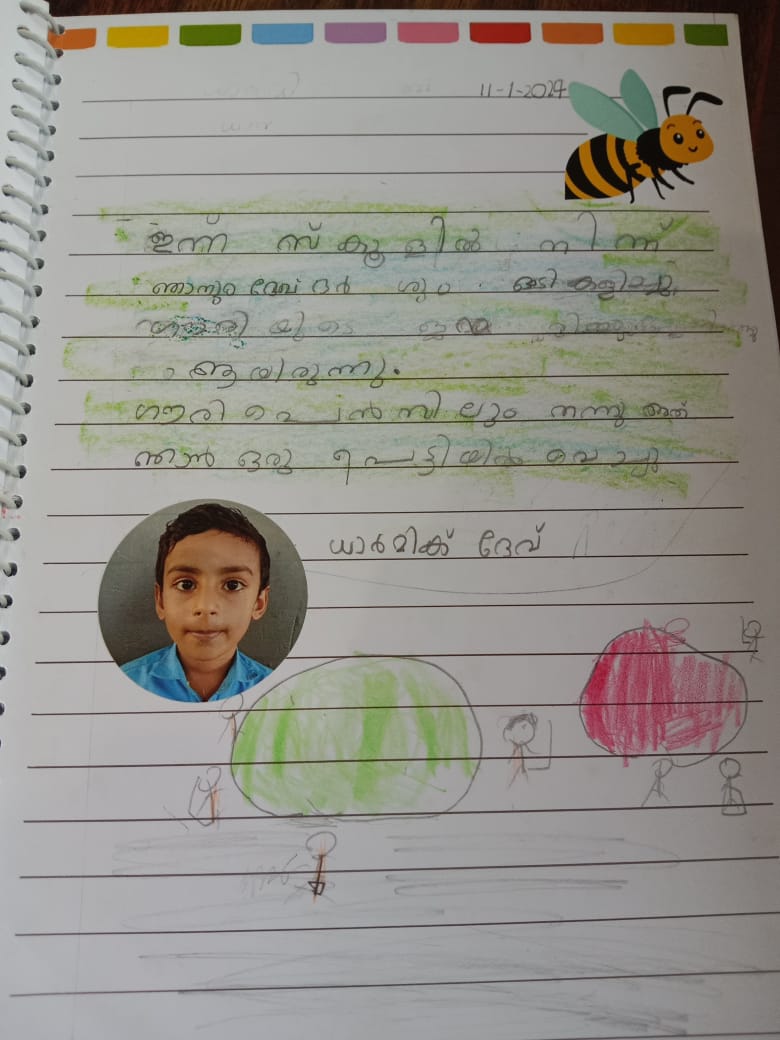 11-1-2024
ഇന്ന് സ്കൂളിൽ നിന്ന്
ഞാനും ദേവ് ദർശും ഓടി കളിച്ചു.
ആയിരുന്നു.
ഗൗരി പെൻസിലും തന്നു അത്
ഞാൻ ഒരു പെട്ടിയിൽ വെച്ചു
ധാർമിക് ദേവ്